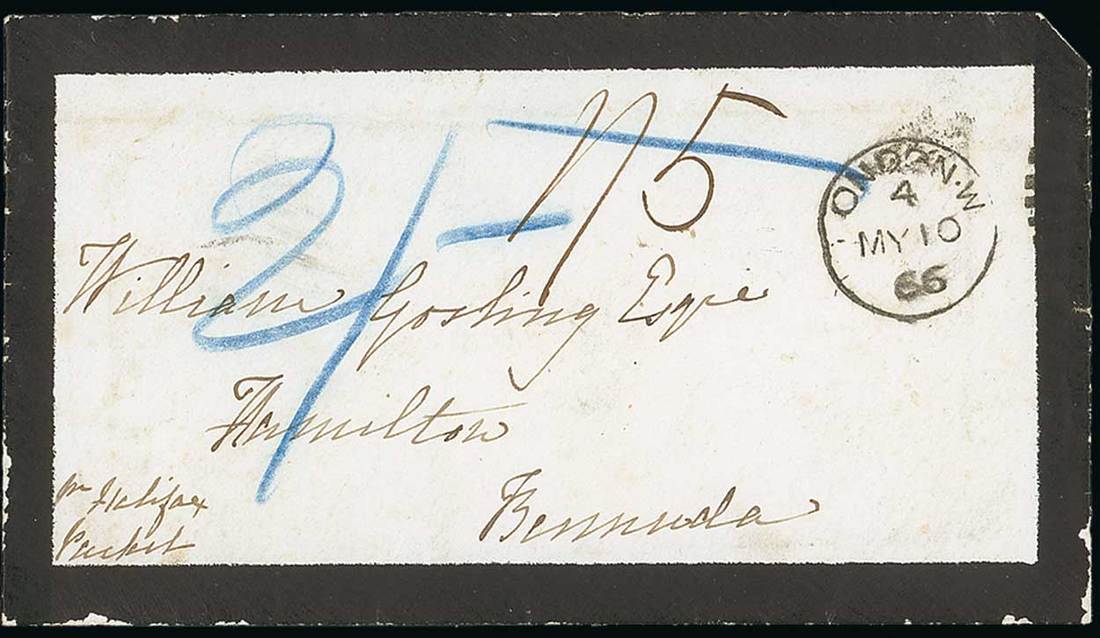 2/- 1/5
LONDON·W
4
MY 10
66
William Gosling Esqre
Hamilton
Bermuda
pr Halifax
Packet